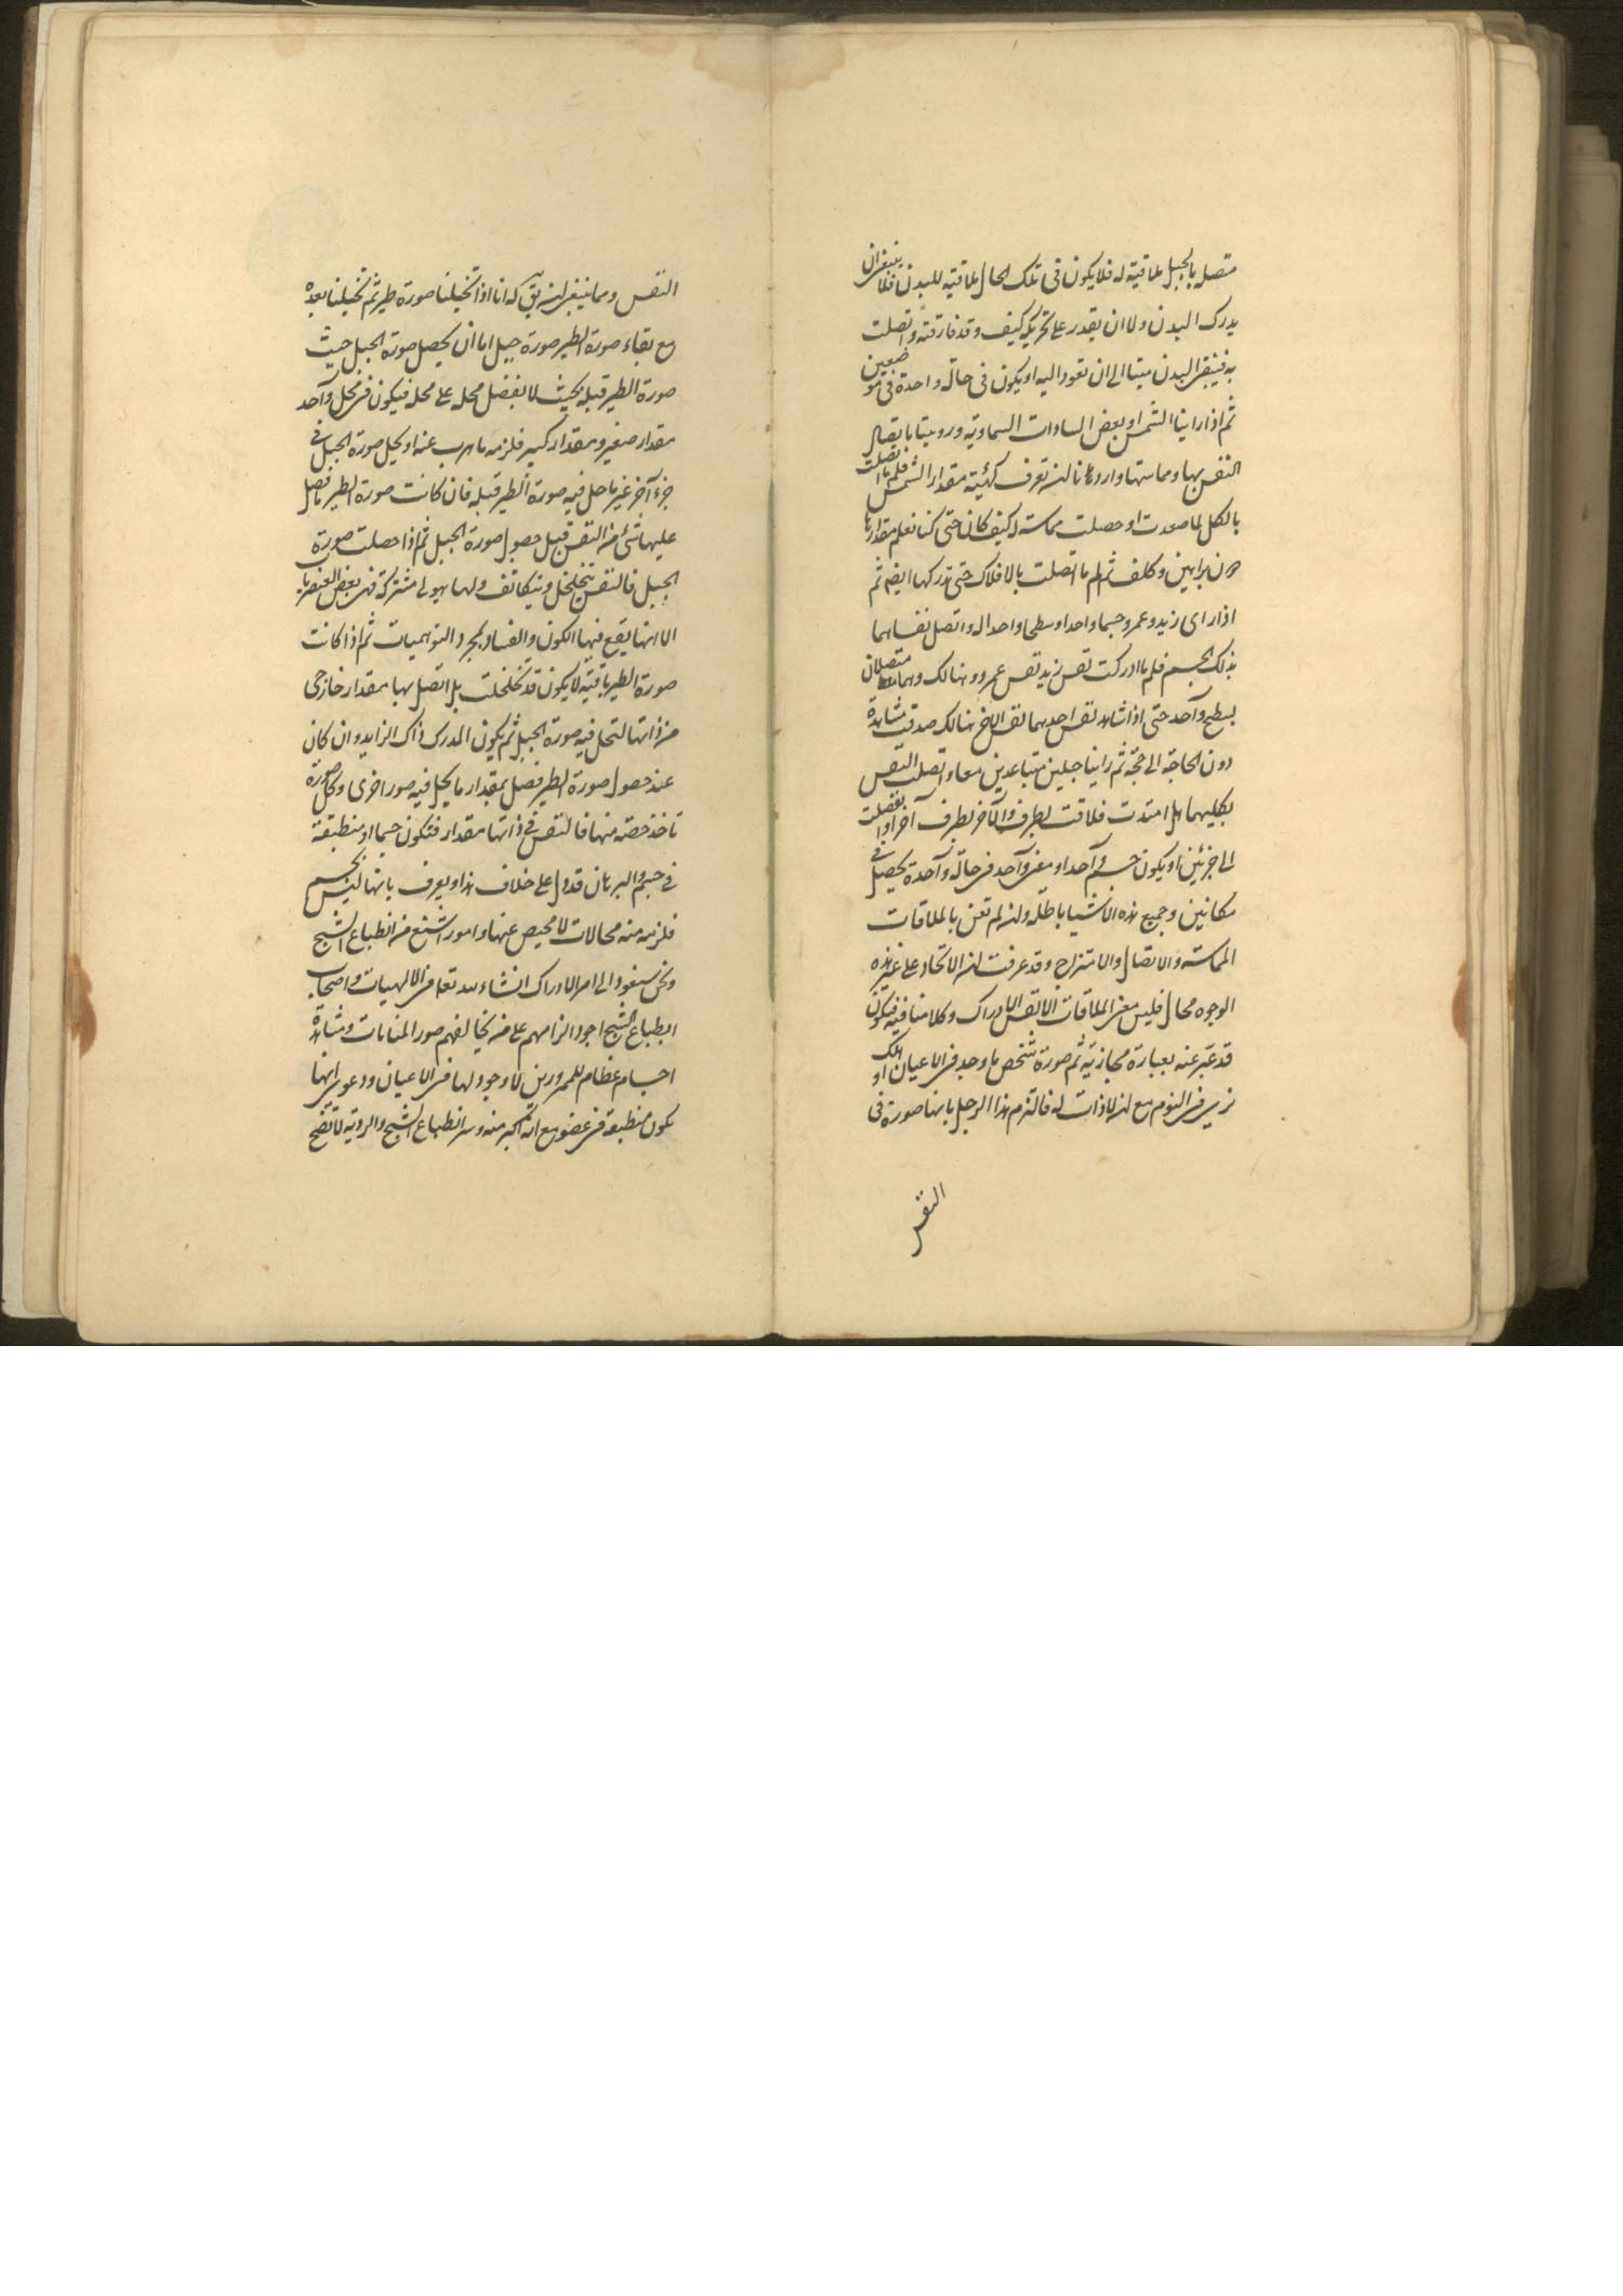 متصل بالجبل ملاقية له فلا يكون فى تلك الحال ملاقية للبدن فلا ينبغى ان
يدرك البدن ولا ان يقدر على تحريكه كيف وقد فارقته واتصلت
به فيبقى البدن ميتا الى ان تعود اليه او يكون فى حالة واحدة فى موضعين
ثم اذا راينا الشمس او بعض السماوات السماوية ورويتنا باتصال
النفس بها ومماستها واردنا ان نعرف كمية مقدار الشمس فلم ما اتصلت
بالكل لما صعدت او حصلت مماسته له كيف كان حتى كنا نعلم مقدارها
دون براهين وكلف ثم لم ما اتصلت بالافلاك حتى تدركها ايضا ثم
اذا راى زيد وعمرو جسما واحدا وسطحا واحدا له واتصل نفساهما
بذلك الجسم فلم ما ادركت نفس زيد نفس عمرو هنالك وهما متصلان
بسطح واحد حتى اذا شاهد نفس احدهما نفس الاخر هنالك صدقت مشاهدة
دون الحاجة الى حجة ثم راينا جبلين متباعدين معا واتصلت النفس
بكليهما هل امتدت فلاقت بطرف والآخر بطرف آخر او انفصلت
الى جزئين او يكون جسم واحد او معنى واحد فى حالة واحدة يحصل فى
مكانين وجميع هذه الاشيا باطلة وان لم تعن بالملاقات
المماسة والاتصال والامتزاج وقد عرفت ان الاتحاد على غير هذه
الوجوه محال فليس معنى الملاقات الا نفس الادراك وكلامنا فيه فيكون
قد عبّر عنه بعبارة مجازية ثم صورة شخص ما وجد فى الاعيان او هلك
نرى فى النوم مع ان لا ذات له فالتزم هذا الرجل بانها صورة فى
النفس
النفس ومما ينبغى ان يق له انا اذا تخيلنا صورة طير ثم تخيلنا بعده
مع بقاء صورة الطير صورة جبل اما ان يحصل صورة الجبل حيث
صورة الطير قبله بحيث لا يفضل محله على محله فيكون فى محل واحد
مقدار صغير ومقدار كبير فلزمه ما هرب عنه او يحل صورة الجبل فى
جزء آخر غير ما حل فيه صورة الطير قبله فان كانت صورة الطير ما فضل
عليها شئ من النفس قبل حصول صورة الجبل ثم اذا حصلت صورة
الجبل فالنفس تتخلخل ويتكاثف ولها هيولى مشتركة فهى بعض العنصريات
الا انها يقع فيها الكون والفساد بمجرد التوهميات ثم اذا كانت
صورة الطير باقية لا يكون قد تخلخلت بل اتصل بها مقدار خارجى
من ذاتها لتحل فيه صورة الجبل ثم يكون المدرك ذاك الزايد وان كان
عند حصول صورة الطير فضل بمقدار ما يحل فيه صور اخرى وكل صورة
تاخذ حصة منها فالنفس فى ذاتها مقدار فتكون جسما او منطبقة
فى جسم والبرهان قد دل على خلاف هذا ويعرف بانها ليس بجسم
فلزمه منه محالات لا محيص عنها وامور اشنع من انطباع الشبح
ونحن سنعود الى امر الادراك انشاء الله تعا فى الالهيات واصحاب
انطباع الشبح اجود الزامهم على من يخالفهم صور المنامات ومشاهدة
اجسام عظام للممرورين لا وجود لها فى الاعيان ودعوى انها
يكون منطبقة فى عضو مع انه اكبر منه وسر انطباع الشبح والروية لا تضح